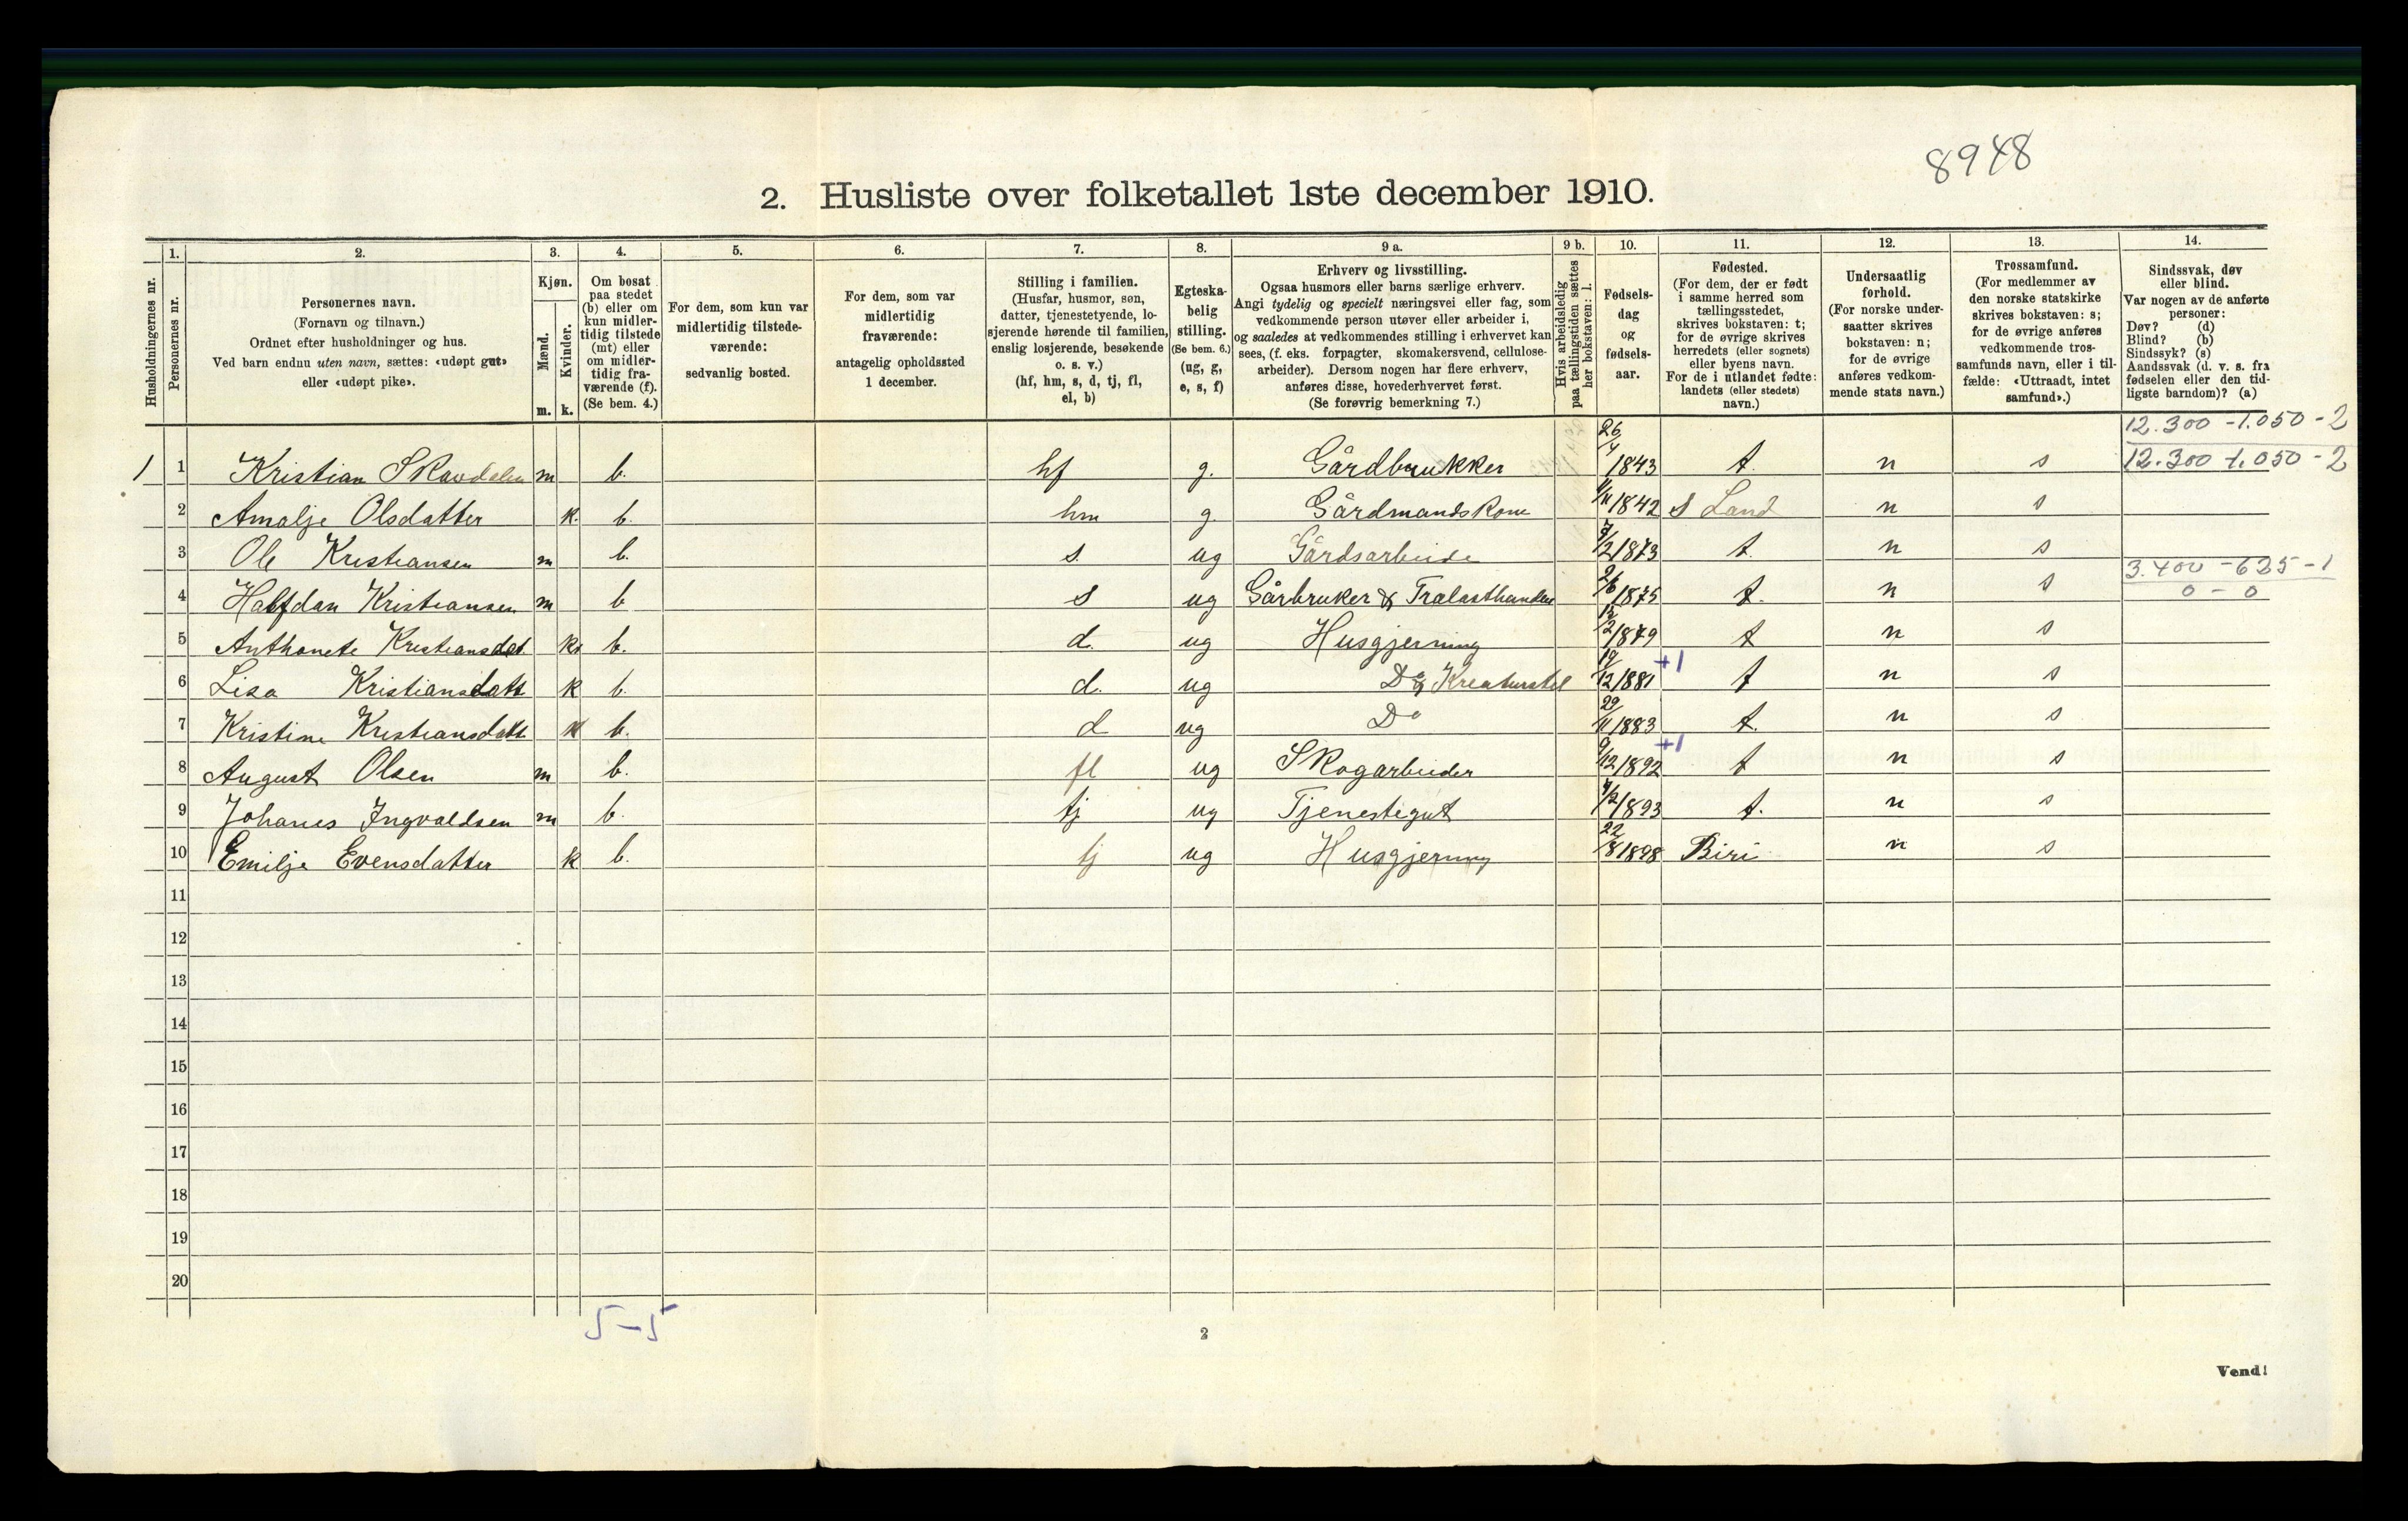 8948
2. Husliste over folketallet 1ste december 1910.
Husholdningernes nr.
1.
Personernes nr.
2.
Personernes navn.
(Fornavn og tilnavn.)
Ordnet efter husholdninger og hus.
Ved barn endnu uten navn, sættes: «udøpt gut»
eller «udøpt pike».
3.
Kjøn.
Mænd.
Kvinder.
m. k.
4.
Om bosat
paa stedet
(b) eller om
kun midler-
tidig tilstede
(mt) eller
om midler-
tidig fra-
værende (f).
(Se bem. 4.)
5.
For dem, som kun var
midlertidig tilstede-
værende:
sedvanlig bosted.
6.
For dem, som var
midlertidig
fraværende:
antagelig opholdssted
1 december.
7.
Stilling i familien.
(Husfar, husmor, søn,
datter, tjenestetyende, lo-
sjerende hørende til familien,
enslig losjerende, besøkende
o. s. v.)
(hf, hm, s, d, tj, fl,
el, b)
8.
Egteska-
belig
stilling.
(Se bem. 6.)
(ug, g,
e, s, f)
9 a.
Erhverv og livsstilling.
Ogsaa husmors eller barns særlige erhverv.
Angi tydelig og specielt næringsvei eller fag, som
vedkommende person utøver eller arbeider i,
og saaledes at vedkommendes stilling i erhvervet kan
sees, (f. eks. forpagter, skomakersvend, cellulose-
arbeider). Dersom nogen har flere erhverv,
anføres disse, hovederhvervet først.
(Se forøvrig bemerkning 7.)
9 b.
Hvis arbeidsledig
paa tællingstiden sættes
her bokstaven: l.
10.
Fødsels-
dag
og
fødsels-
aar.
11.
Fødested.
(For dem, der er født
i samme herred som
tællingsstedet,
skrives bokstaven: t;
for de øvrige skrives
herredets (eller sognets)
eller byens navn.
For de i utlandet fødte:
landets (eller stedets)
navn.)
12.
Undersaatlig
forhold.
(For norske under-
saatter skrives
bokstaven: n;
for de øvrige
anføres vedkom-
mende stats navn.)
13.
Trossamfund.
(For medlemmer av
den norske statskirke
skrives bokstaven: s;
for de øvrige anføres
vedkommende tros-
samfunds navn, eller i til-
fælde: «Uttraadt, intet
samfund».)
14.
Sindssvak, døv
eller blind.
Var nogen av de anførte
personer:
Døv? (d)
Blind? (b)
Sindssyk? (s)
Aandssvak (d. v. s. fra
fødselen eller den tid-
ligste barndom)? (a)
12.300 - 1.050 - 2
1 1 Kristian Skavdalen m b. hf g. Gårdbrukker 26/4 1843 t. n s 12.300 1.050 - 2
2 Amalje Olsdatter k. b. hm g. Gårdmandskone 1842 S Land n s
3 Ole Kristiansen m b. s. ug Gårdsarbeide 7/2 1873 t. n s
3.400 - 625 - 1
4 Halfdan Kristiansen m b s ug Gårbruker & Trælasthandler 2/6 1875 t. n s 0 - 0
5 Anthonete Kristiansdat. k. b. d. ug Husgjerning 12/2 1879 t n s
+1
6 Lisa Kristiansdatt k b. d. ug Do & Kreaturstel 19/12 1881 t n s
7 Kristine Kristiansdatt k b. d ug Do 29/11 1883 t. n s
+1
8 August Olsen m b. fl ug Skogarbeider 9/12 1892 t n s
9 Johanes Ingvaldsen m b. tj ug Tjenestegut 4/2 1893 t. n s
10 Emilje Evensdatter k b. tj ug Husgjerning 22/8 1898 Biri n s
11
12
13
14
15
16
17
18
19
20
5-5
2
Vend!